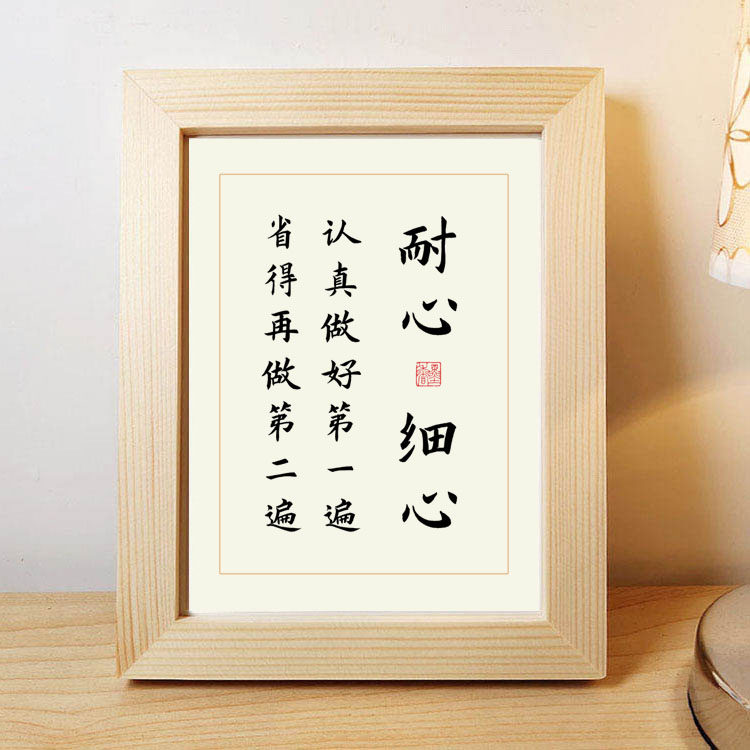 耐心 细心
认真做好第一遍
省得再做第二遍